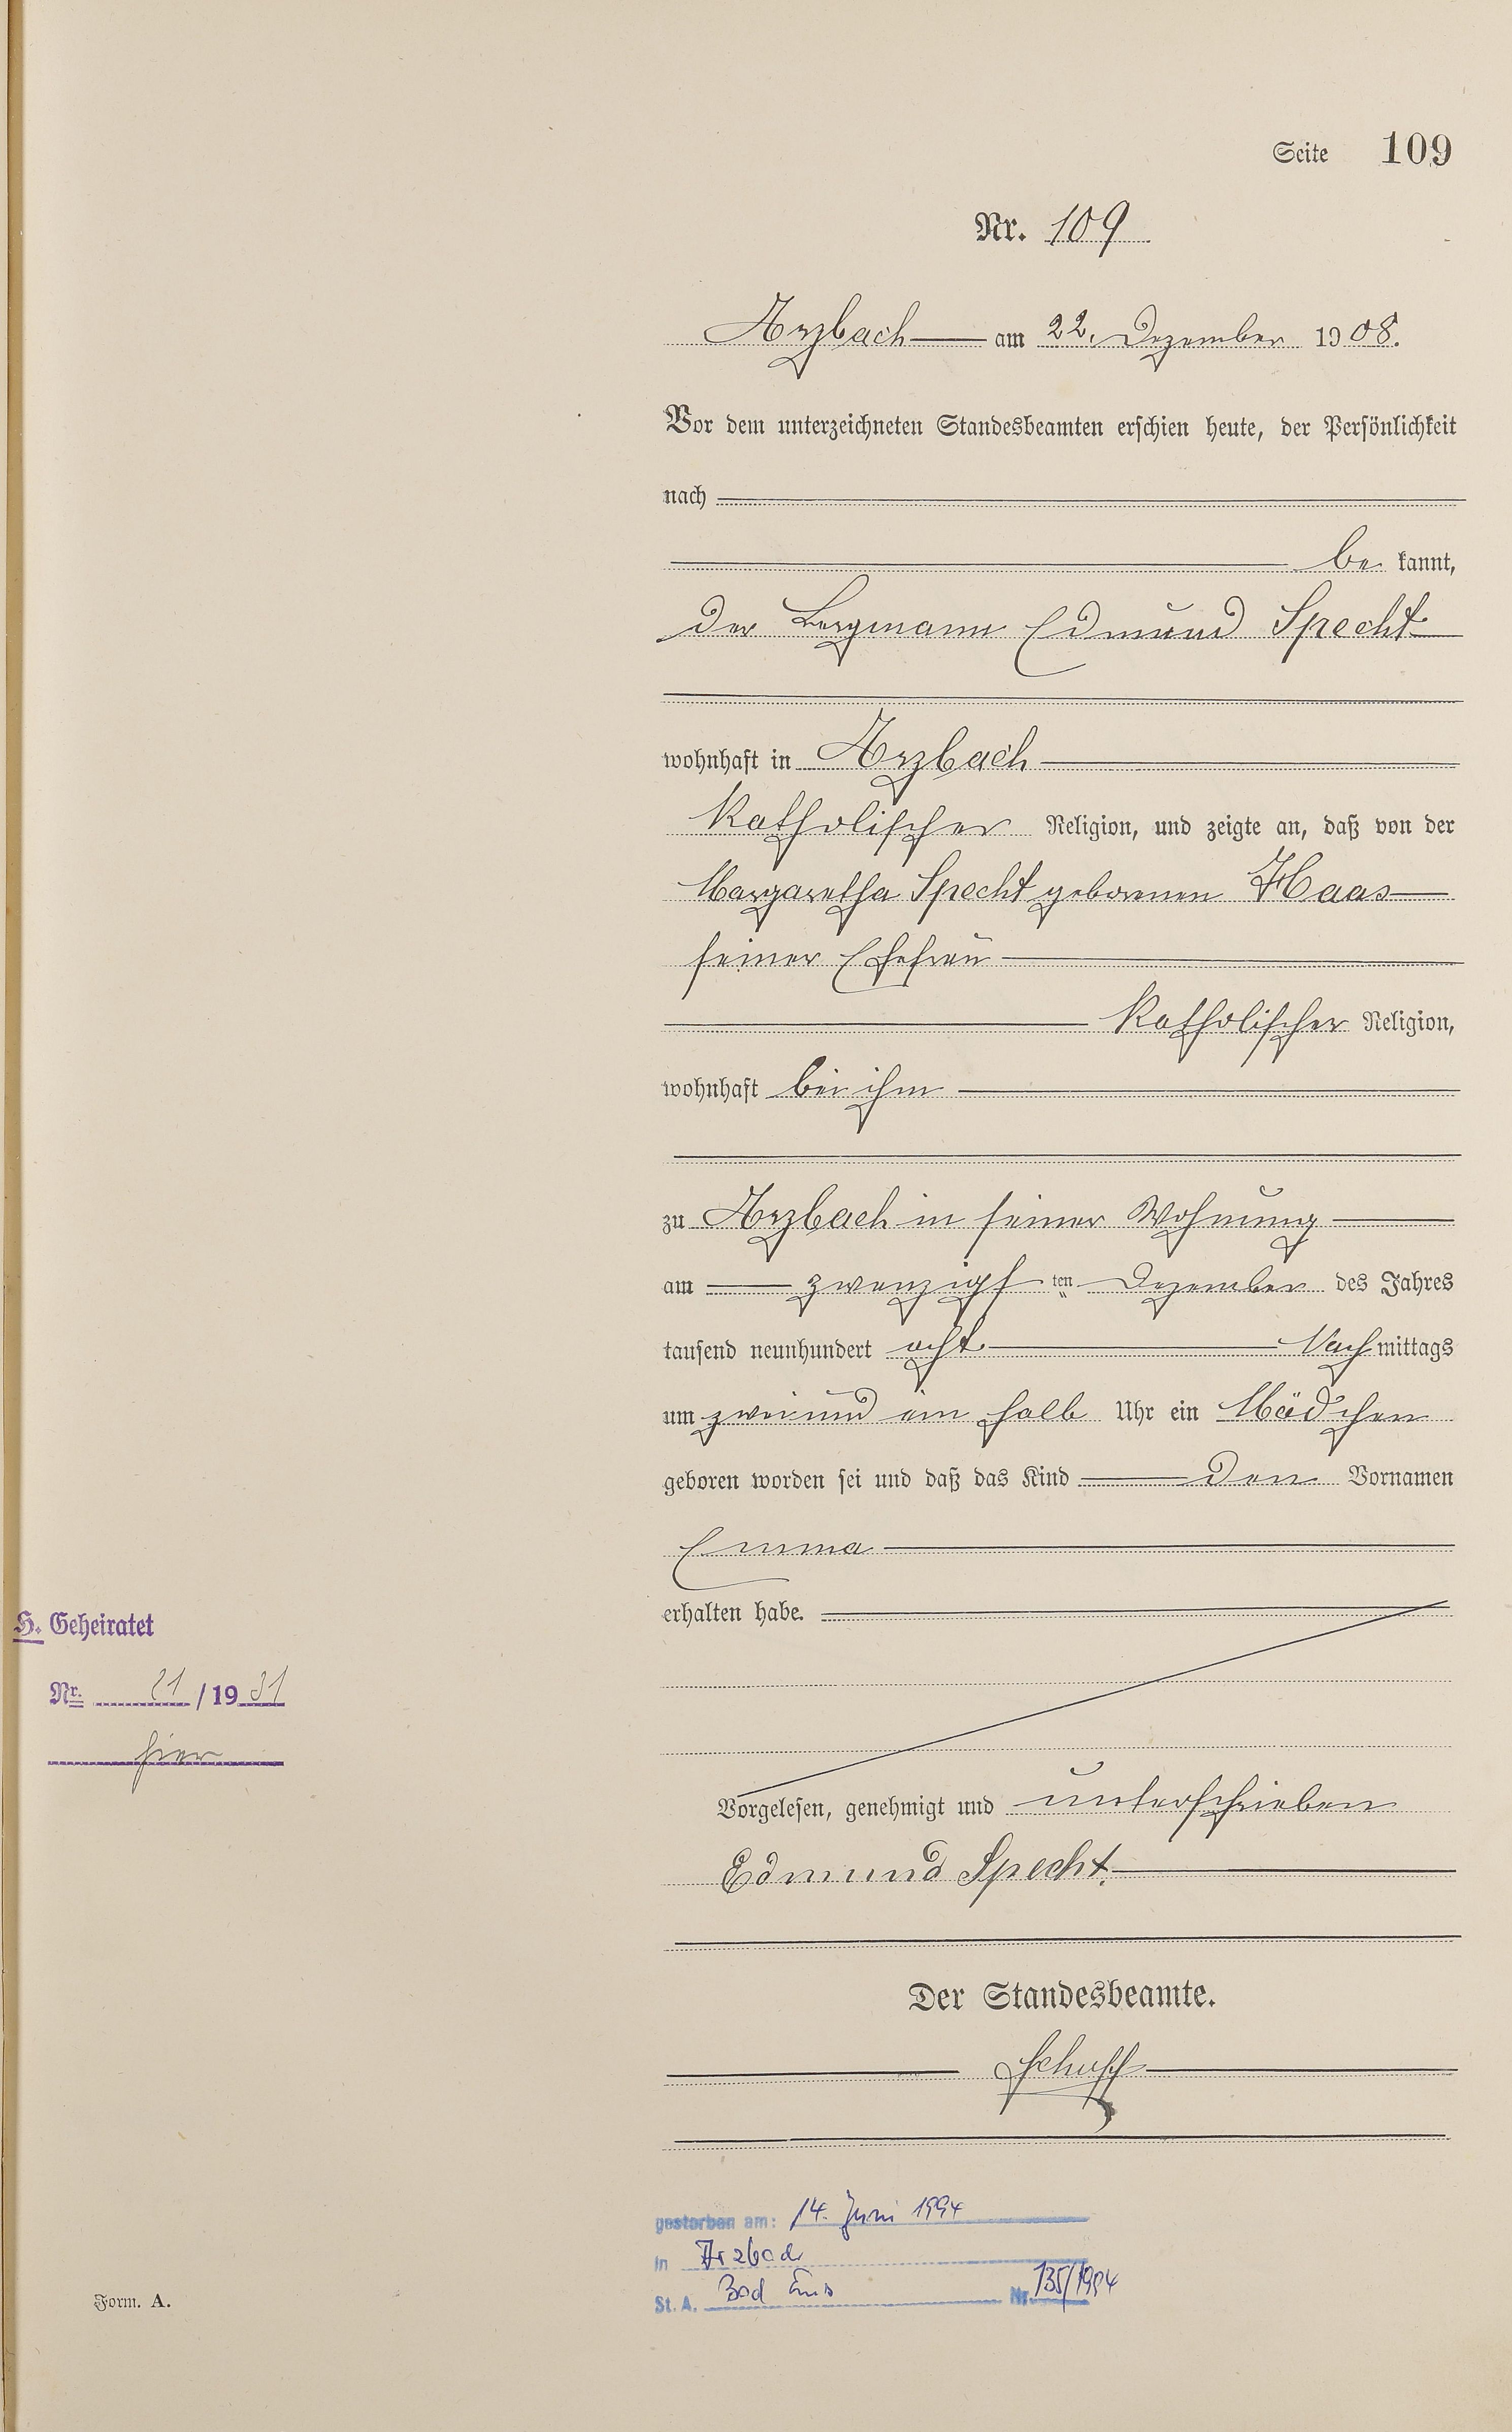 Seite 109
Nr. 109
Arzbach am 22. Dezember 1908.
Vor dem unterzeichneten Standesbeamten erschien heute, der Persönlichkeit
nach
be kannt,
der Bergmann Edmund Specht
wohnhaft in Arzbach
katholischer Religion, und zeigte an, daß von der
Margaretha Specht geborenen Haas
seiner Ehefrau
katholischer Religion,
wohnhaft bei ihm
zu Arzbach in seiner Wohnung
am zwanzigsten Dezember des Jahres
tausend neunhundert acht Nachmittags
um zwei und ein halb Uhr ein Mädchen
geboren worden sei und daß das Kind den Vornamen
Emma
erhalten habe.
H. Geheiratet
Nr. 21 / 1931
hier
Vorgelesen, genehmigt und unterschrieben
Edmund Specht.
Der Standesbeamte.
Schupp
gestorben am: 14. Juni 1994
in Arzbach
St. A. Bad Ems Nr. 135/1994
Form. A.